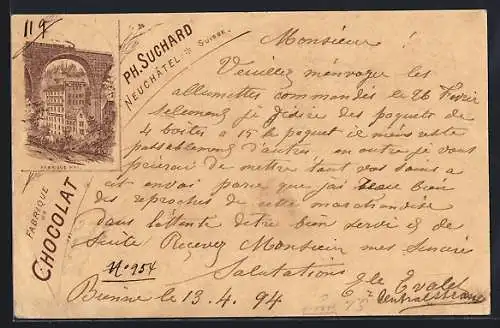 119
PH. SUCHARD
NEUCHÂTEL Suisse.
FABRIQUE DE
CHOCOLAT
Monsieur !
Veuillez m'envoyer les
allumettes commandés le 26 Fevrie
seulement je désire des paquets de
4 boîtes a 15 le paquet il m'en reste
passablement d'autres en outre je vous
prierai de mettre tout vos soins a
cet envoi parce que j'ai beau bien
des reproches de votre marchandise
dans l'attente detre bien servi de
suite Recevez Monsieur mes sincère
Salutations
No 954
Bienne le 13. 4. 94